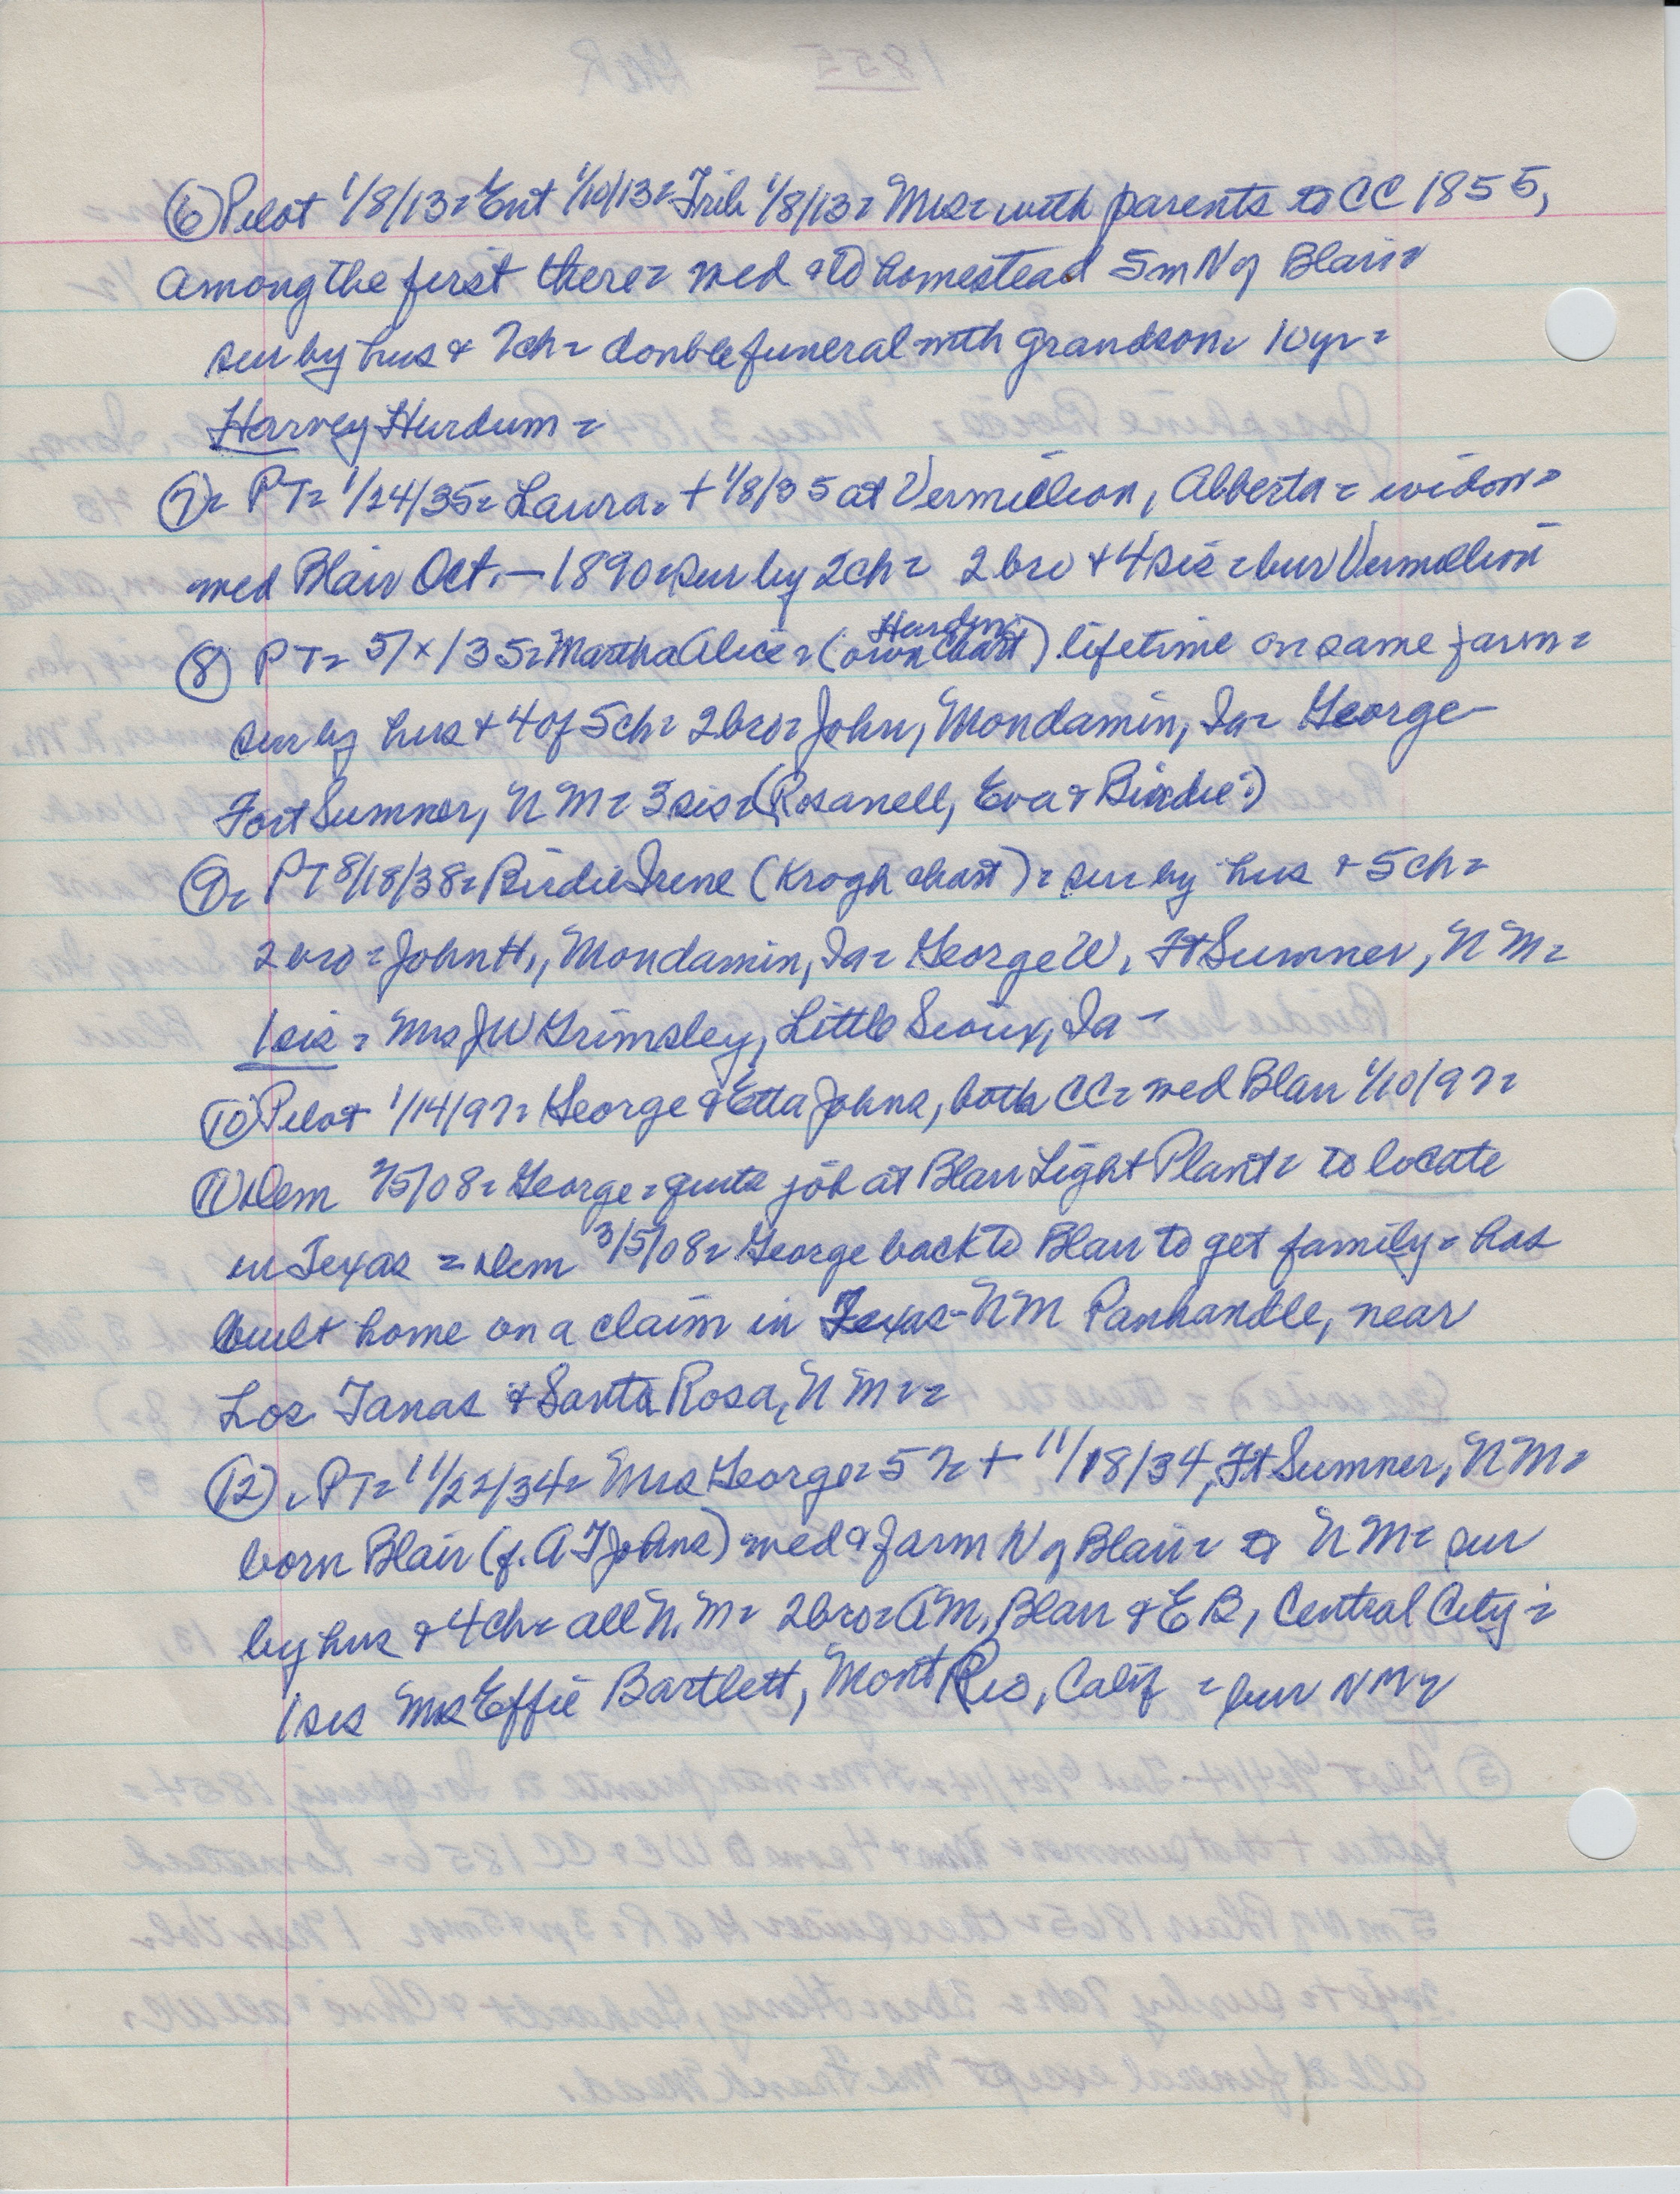 (6) Pilot 1/8/13= Ent 1/10/13= Trib 1/8/13= Mrs= with parents to CC 1855,
among the first there= med & to homestead 5m N of Blair=
sur by hus & 7ch= double funeral with grandson= 10yr=
Harvey Hurdum=
(7)= PT= 1/24/35= Laura= + 1/8/35 at Vermillion, Alberta= widow=
med Blair Oct.— 1890= sur by 2ch= 2 bro + 4 sis= bur Vermillion
(8) PT= 5/x/35= Martha Alice= (Hurdum own chart) lifetime on same farm=
sur by hus + 4 of 5ch= 2bro= John, Mondamin, Ia= George—
Fort Sumner, NM= 3sis= (Rosanell, Eva & Birdie?)
(9)= PT 8/18/38= Birdie Irene (Krogh chart)= sur by hus + 5ch=
2bro= John H., Mondamin, Ia= George W, Ft Sumner, NM=
1sis= Mrs JW Grimsley, Little Sioux, Ia—
(10) Pilot 1/14/97= George & Etta Johns, both CC= med Blair 1/10/97=
(11) Dem /5/08= George= quits job at Blair Light Plant= to locate
in Texas= Dem 3/5/08= George back to Blair to get family= has
built home on a claim in Texas-NM Panhandle, near
Los Tanas & Santa Rosa, NM==
(12), PT= 11/22/34= Mrs George= 57= + 11/18/34, Ft Sumner, NM=
born Blair (f. AJ Johns) med & farm N of Blair= to NM= sur
by hus & 4ch= all N.M= 2bro= AM, Blair & ER, Central City=
1 sis Mrs Effie Bartlett, Mont Rio, Calif= bur NM=